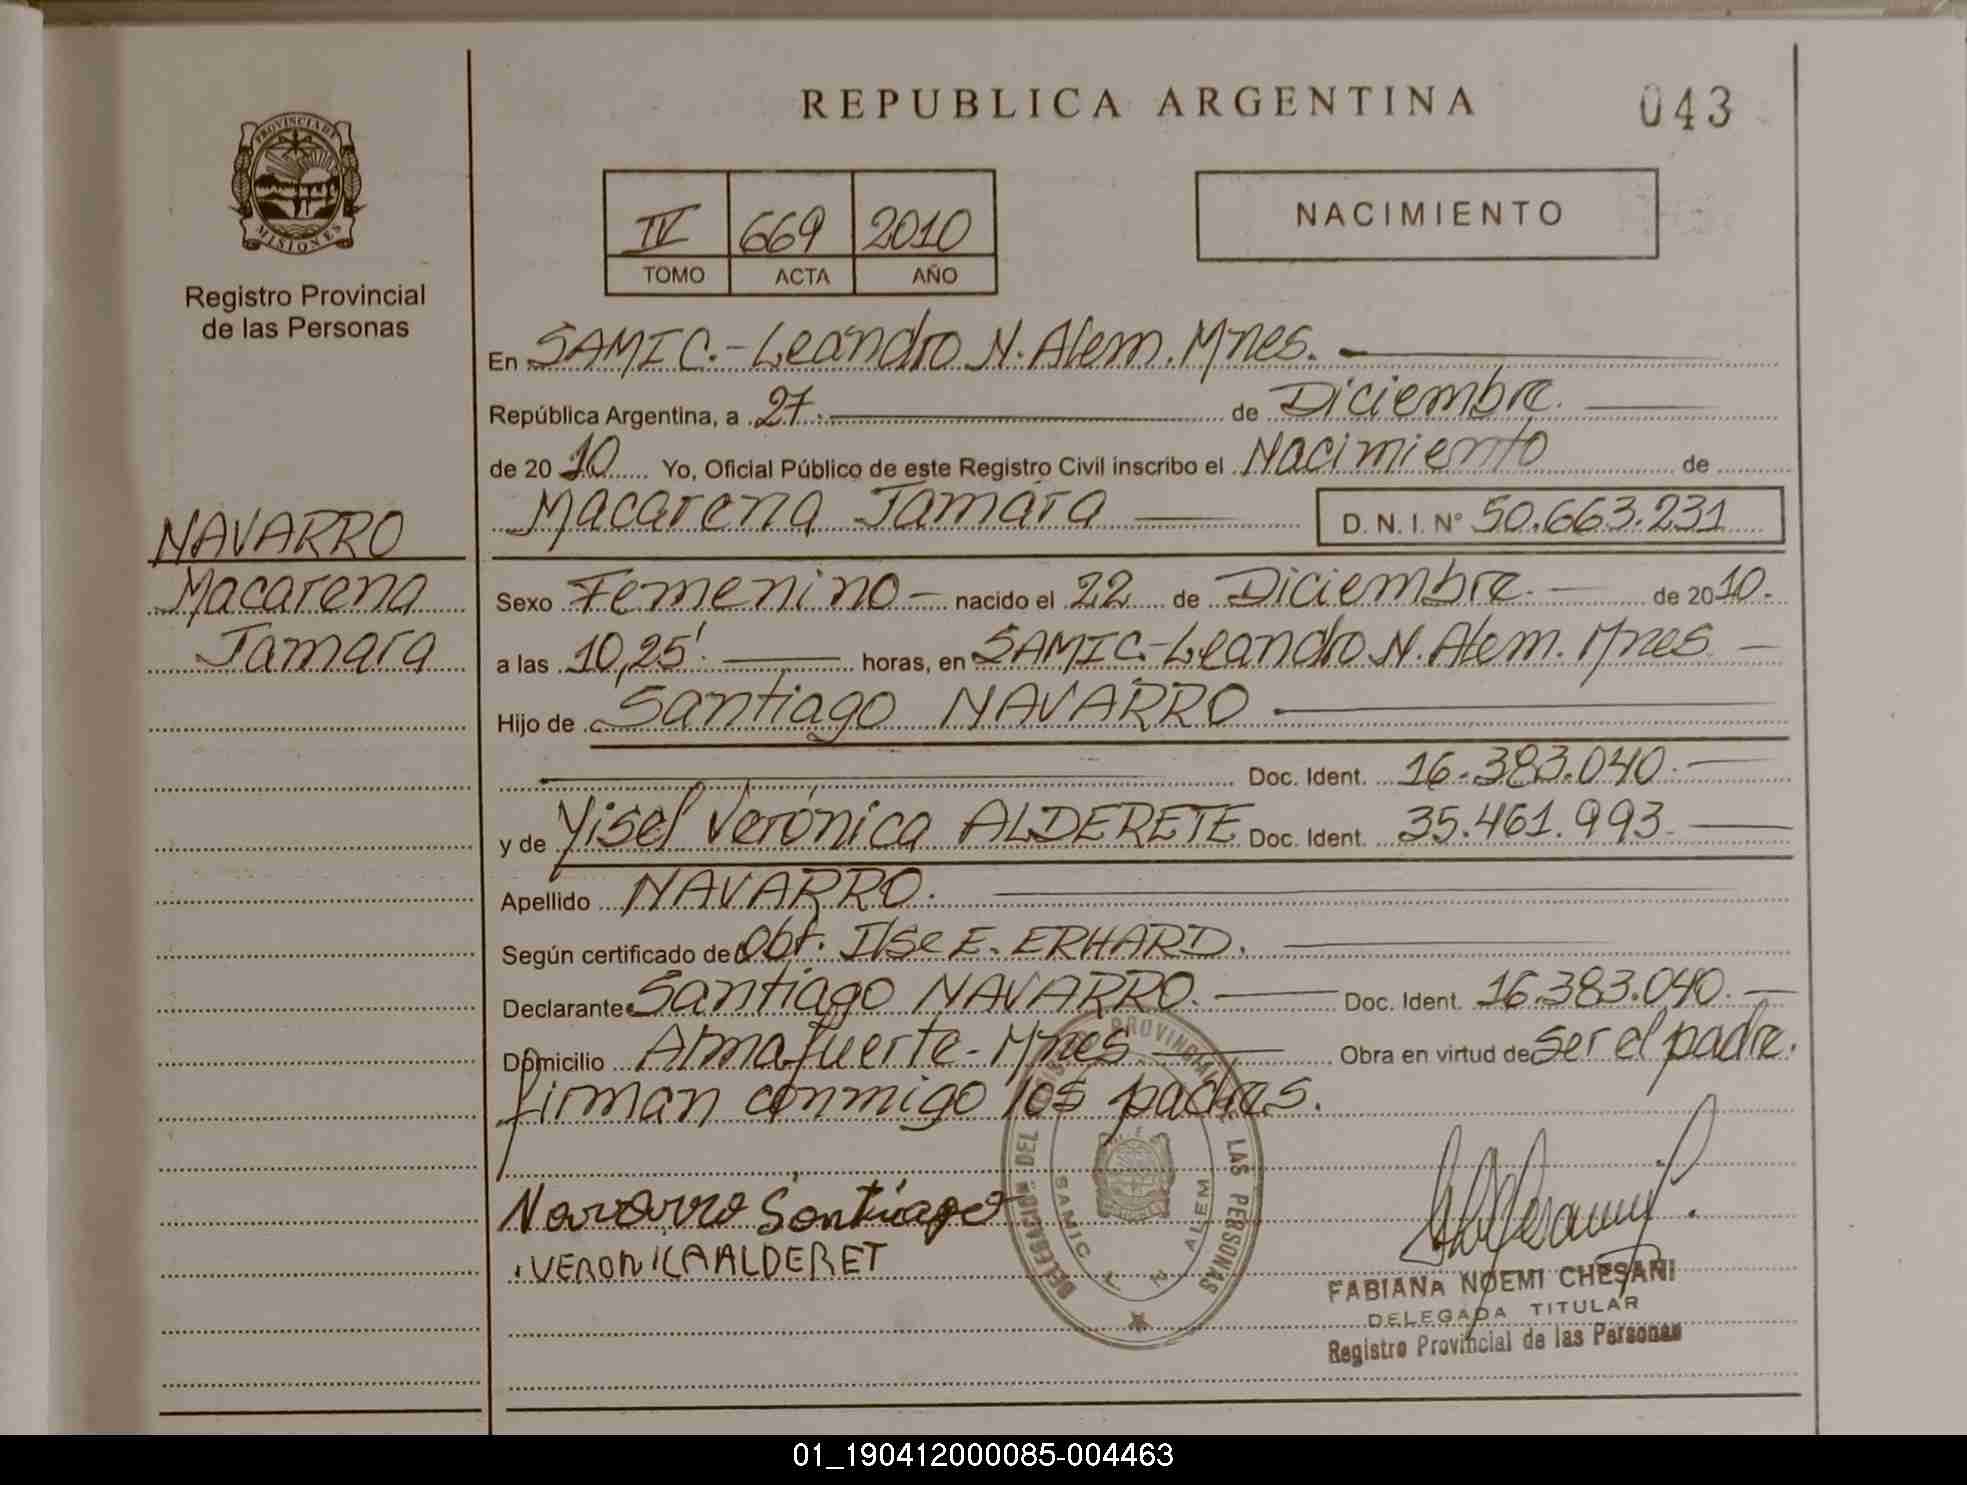 REPUBLICA ARGENTINA
043
PROVINCIA DE
MISIONES
Registro Provincial
de las Personas
IV 669 2010
TOMO ACTA AÑO
NACIMIENTO
En SAMIC.-Leandro N. Alem. Mnes.
República Argentina, a 27. de Diciembre.
de 20 10 Yo, Oficial Público de este Registro Civil inscribo el Nacimiento de
Macarena Tamara D. N. I. N° 50.663.231
NAVARRO
Macarena
Tamara
Sexo Femenino nacido el 22 de Diciembre. de 20 10.
a las 10,25'. horas, en SAMIC.-Leandro N. Alem. Mnes
Hijo de Santiago NAVARRO
Doc. Ident. 16.383.040.
y de Yisel Verónica ALDERETE Doc. Ident. 35.461.993.
Apellido NAVARRO.
Según certificado de Obt. Ilse E. ERHARD.
Declarante Santiago NAVARRO. Doc. Ident. 16.383.040.
Domicilio Almafuerte-Mnes Obra en virtud de ser el padre.
firman conmigo los padres.
Navarro Santiago
VERONICA ALDERET
DELEGACION DEL REGISTRO PROVINCIAL DE LAS PERSONAS
SAMIC L N ALEM
FABIANA NOEMI CHESANI
DELEGADA TITULAR
Registro Provincial de las Personas
01_190412000085-004463